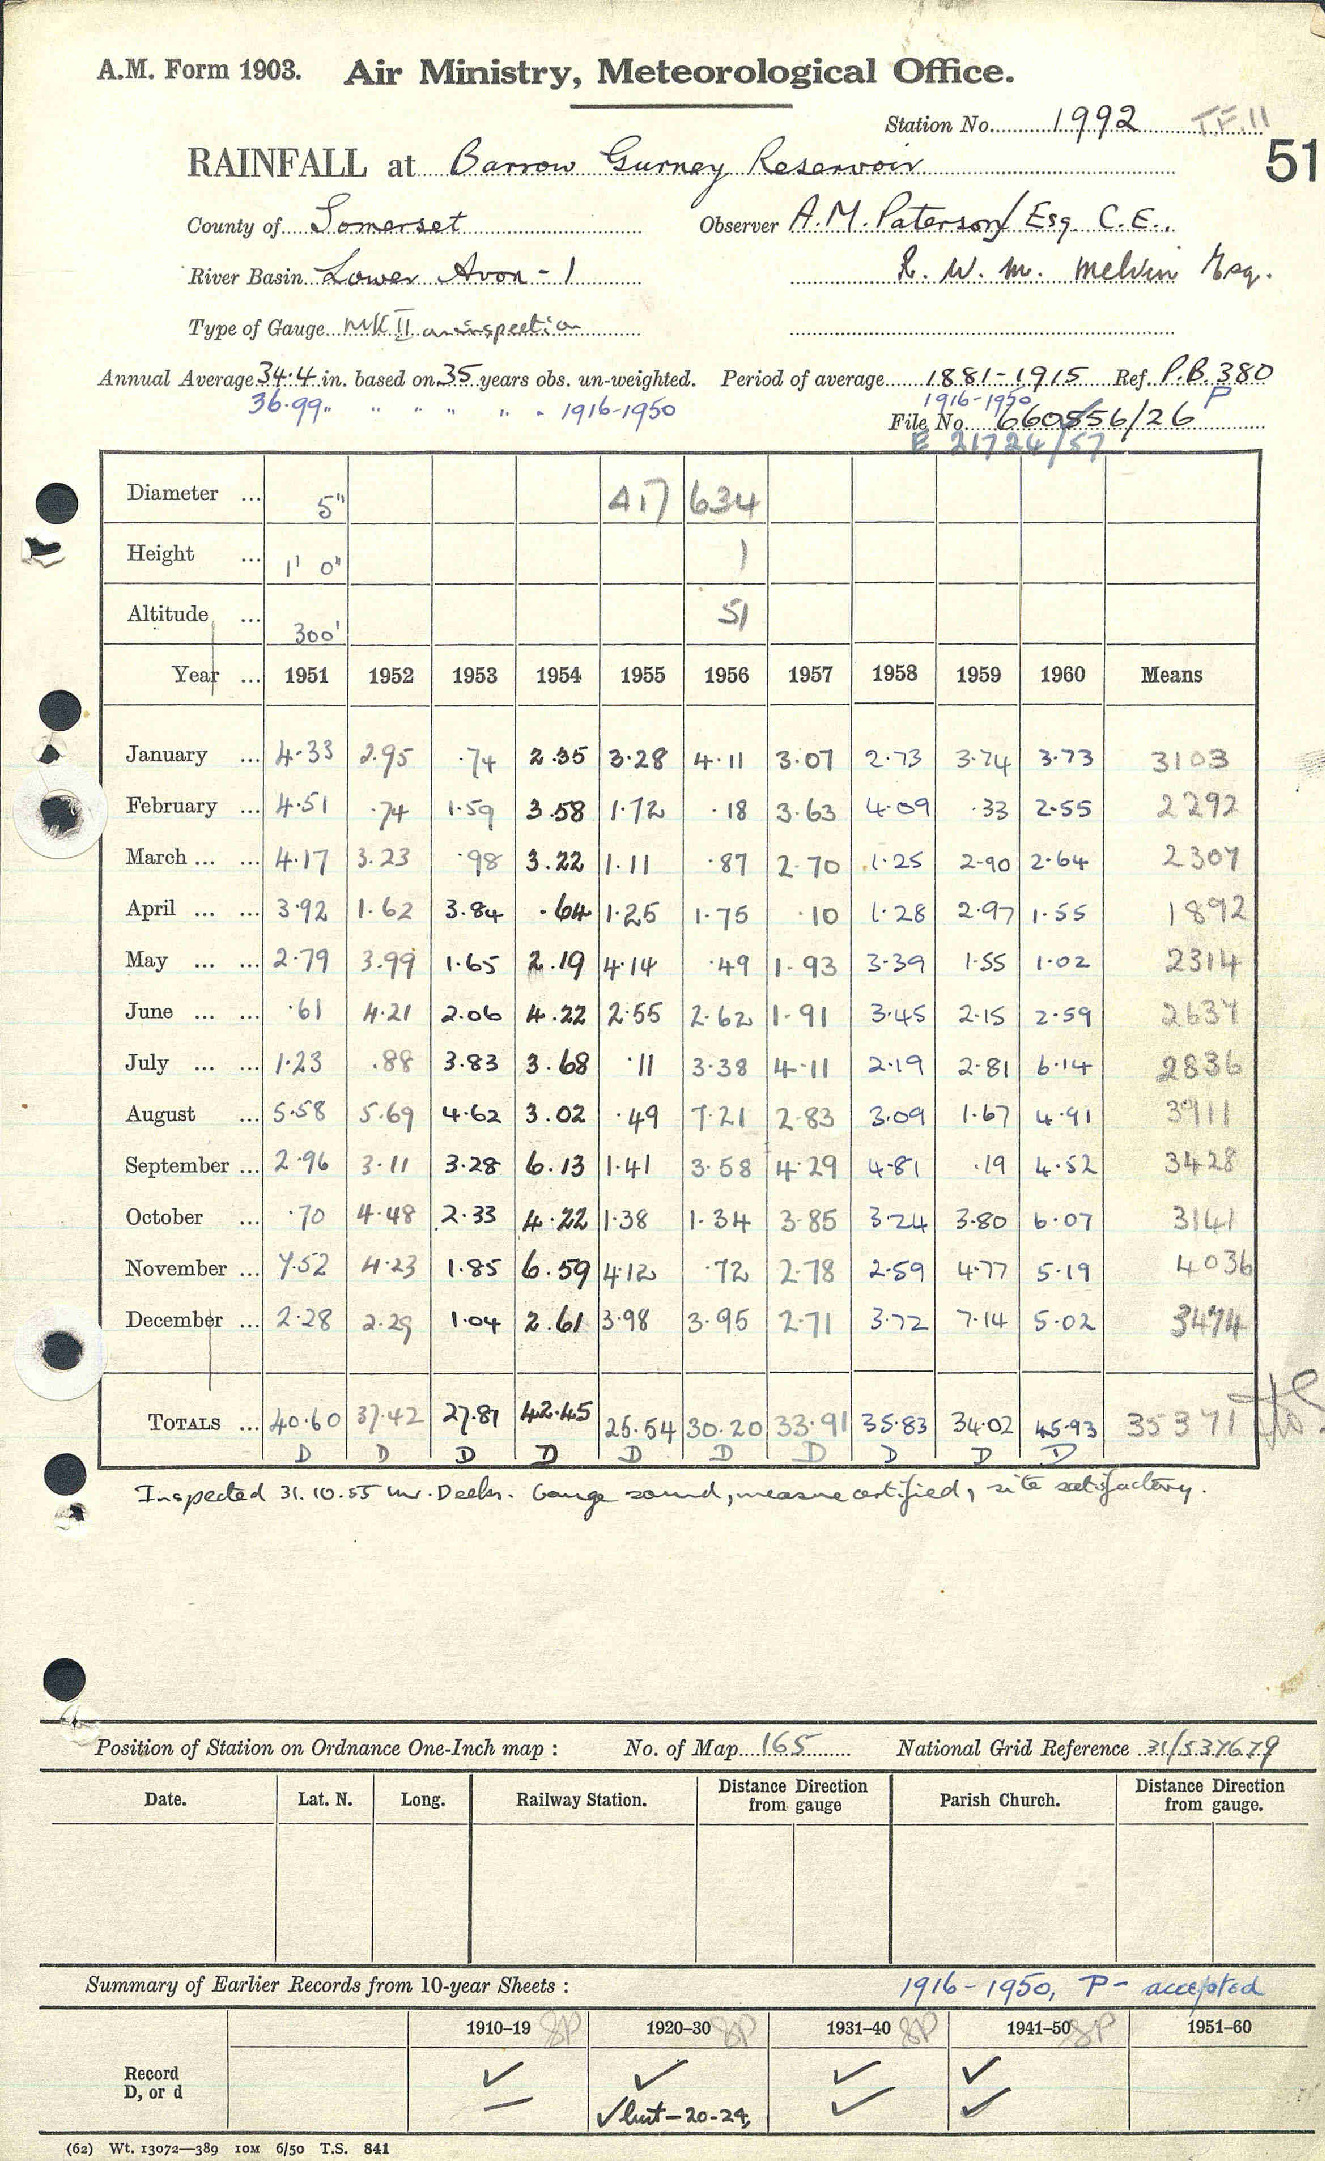 A.M. Form 1903. Air Ministry, Meteorological Office.
Station No. 1992 T.F. 11
51
RAINFALL at Barrow Gurney Reservoir
County of Somerset Observer A.M. Paterson Esq C.E.,
River Basin Lower Avon - 1 R. W. M. Melvin Esq.
Type of Gauge MK II on inspection
Annual Average 34.4 in. based on 35 years obs. un-weighted. Period of average 1881-1915 Ref. P.B. 380
36.99 " " " " " " 1916-1950 1916-1950 P
File No. 660556/26
E 21724/57
Diameter ... 5" 417 634
Height ... 1' 0" 1
Altitude ... 300' 51
Year ... 1951 1952 1953 1954 1955 1956 1957 1958 1959 1960 Means
January ... 4.33 2.95 .74 2.35 3.28 4.11 3.07 2.73 3.74 3.73 3103
February ... 4.51 .74 1.59 3.58 1.72 .18 3.63 4.09 .33 2.55 2292
March ... ... 4.17 3.23 .98 3.22 1.11 .87 2.70 1.25 2.90 2.64 2307
April ... ... 3.92 1.62 3.84 .64 1.25 1.75 .10 1.28 2.97 1.55 1892
May ... ... 2.79 3.99 1.65 2.19 4.14 .49 1.93 3.39 1.55 1.02 2314
June ... ... .61 4.21 2.06 4.22 2.55 2.62 1.91 3.45 2.15 2.59 2637
July ... ... 1.23 .88 3.83 3.68 .11 3.38 4.11 2.19 2.81 6.14 2836
August ... 5.58 5.69 4.62 3.02 .49 7.21 2.83 3.09 1.67 4.91 3911
September ... 2.96 3.11 3.28 6.13 1.41 3.58 4.29 4.81 .19 4.52 3428
October ... .70 4.48 2.33 4.22 1.38 1.34 3.85 3.24 3.80 6.07 3141
November ... 7.52 4.23 1.85 6.59 4.12 .72 2.78 2.59 4.77 5.19 4036
December ... 2.28 2.29 1.04 2.61 3.98 3.95 2.71 3.72 7.14 5.02 3474
TOTALS ... 40.60 37.42 27.81 42.45 25.54 30.20 33.91 35.83 34.02 45.93 35371
D D D D D D D D D D
Inspected 31.10.55 Mr. Deeks. Gauge sound, measure certified, site satisfactory.
Position of Station on Ordnance One-Inch map : No. of Map 165 National Grid Reference 31/537679
Date. Lat. N. Long. Railway Station. Distance Direction from gauge Parish Church. Distance Direction from gauge.
Summary of Earlier Records from 10-year Sheets : 1916-1950, P - accepted
1910–19 SP 1920–30 SP 1931–40 SP 1941–50 SP 1951–60
Record ✓ ✓ ✓ ✓
D, or d — ✓ but - 20-29, ✓ ✓
(62) Wt. 13072—389 10M 6/50 T.S. 841